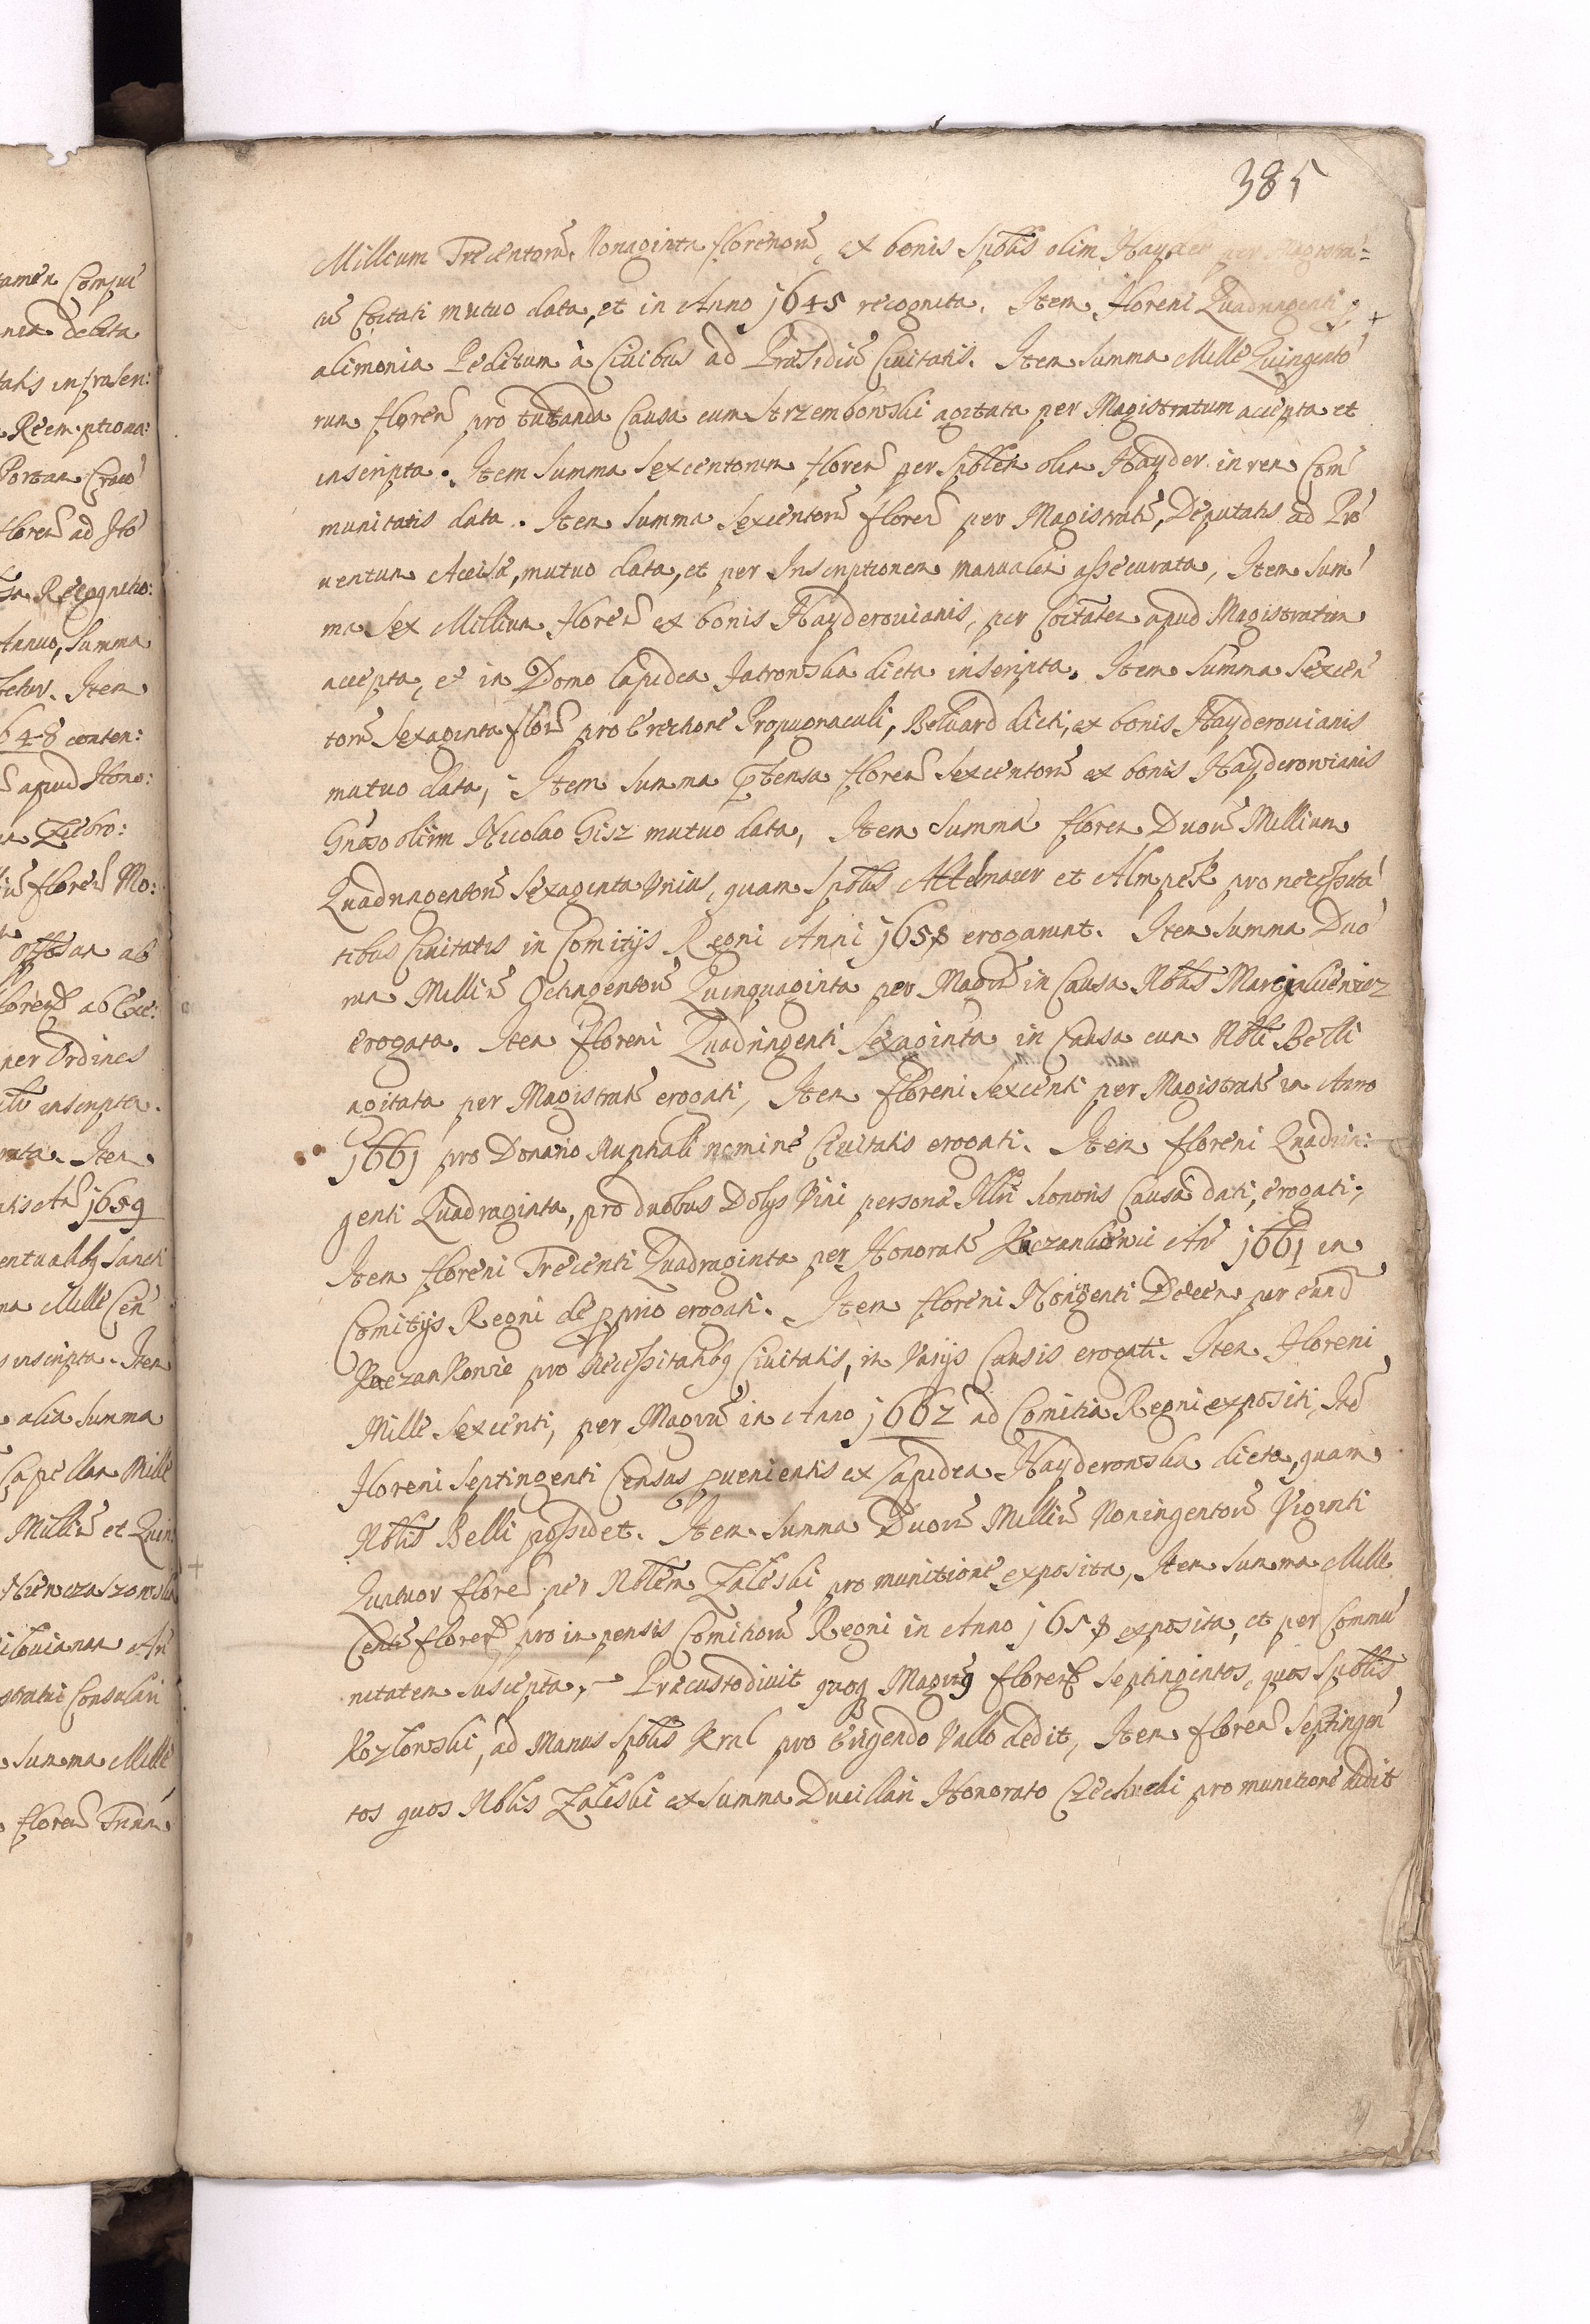 385
Millium Trecentorũ Nonaginta florenorũ, ex bonis Spblis olim Hayder per Magistra:
tũ Coitati mutuo data, et in Anno 1645 recognita. Item Floreni Quadringenti
alimonia Peditum à Civibus ad Præsidiũ Civitatis. Item Summa Mille Quingento
rum floren̄ pro tutanda Causa cum Strzembowski agitata per Magistratum accepta et
inscripta. Item Summa Sexcentorum floren̄ per Spblem olim Hayder in rem Com
munitatis data. Item Summa Sexcentorũ floren̄ per Magistratũ, Deputatis ad Pro
uentum Accisæ, mutuo data, et per Inscriptionem manualem assecurata, Item Sum
ma Sex Millium floren̄ ex bonis Hayderouianis, per Coitatem apud Magistratum
accepta, et in Domo Lapidea Jatrowska dicta inscripta. Item Summa Sexcen
torũ Sexaginta florũ pro Erectione Propugnaculi, Beluard dicti, ex bonis Hayderouianis
mutuo data, Item Summa ptensa floren̄ Sexcentorũ ex bonis Hayderowianis
Gnõso olim Nicolao Gisz mutuo data, Item Summa floren Duorũ Millium
Quadringentorũ Sexaginta Vnius, quam Spblis Attelmaier et Almpek pro necessita
tibus Civitatis in Comitijs Regni Anni 1658 erogarunt. Item Summa Duo
rum Milliũ Octingentorũ Quinquaginta per Magrũ in Causa Nblis Marcinkiewicz
erogata. Item Floreni Quadringenti Sexaginta in Causa cum Nbli Belli
agitata per Magistratũ erogati, Item floreni Sexcenti per Magistratũ in Anno
1661 pro Donario Nuptiali nomine Civitatis erogati. Item floreni Quadrin:
genti Quadraginta, pro duobus Dolijs Vini personæ Illri honoris Causa dati, erogati,
Item floreni Trecenti Quadraginta per Honoratũ Kaczankowic Añ 1661 in
Comitijs Regni de pprio erogati. Item floreni Noningenti Decem per eund
Kaczankowic pro Necessitatibq Civitatis, in Varijs Causis erogati. Item Floreni
Mille Sexcenti, per Magrũ in Anno 1662 ad Comitia Regni expositi, Itẽ
Floreni Septingenti Census puenientis ex Lapidea Hayderowska dicta, quam
Nblis Belli possidet. Item Summa Duorũ Milliũ Noningentorũ Viginti
Quatuor floren̄ per Nblem Zaleski pro munitione exposita, Item Summa Mille
Centũ floren̄ pro impensis Comitiorũ Regni in Anno 1658 exposita, et per Commu
nitatem suscepta, – Præcustodivit quoq Magrq floren̄ Septingintos, quos Spblis
Kozlowski, ad Manus Spblis Kral pro Erigendo Vallo dedit, Item floren̄ Septingen
tos quos Nblis Zaleski ex Summa Ducillari Honorato Czechecki pro munitione dedit